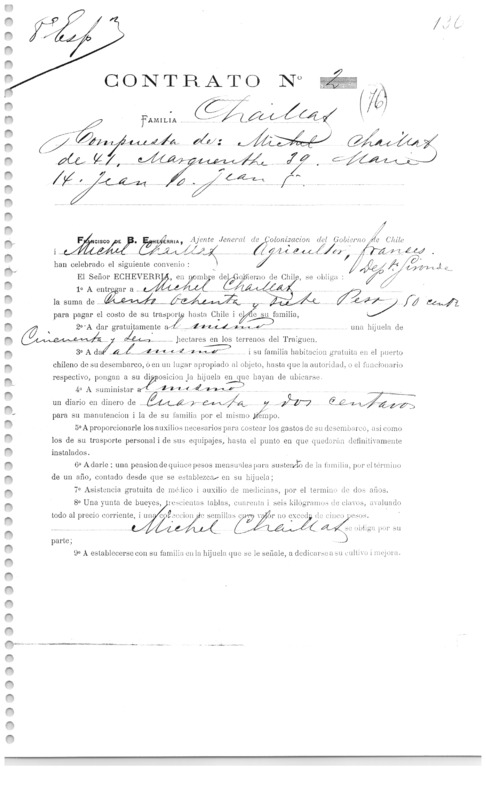 8° Esp
136
CONTRATO Nº 2
(76)
FAMILIA Chaillat
Compuesta de: Michel Chaillat
de 41. Marguerithe 39. Marie
14. Jean 10. Jean 7.
FRANCISCO DE B. ECHEVERRIA, Ajente Jeneral de Colonizacion del Gobierno de Chile
i Michel Chaillat Agricultor, frances.
Depto Gironda
han celebrado el siguiente convenio:
El Señor ECHEVERRIA, en nombre del Gobierno de Chile, se obliga:
1º A entregar a Michel Chaillat
la suma de Ciento ochenta y siete Pesos 50 cents
para pagar el costo de su trasporte hasta Chile i el de su familia,
2º A dar gratuitamente al mismo una hijuela de
Cincuenta y seis hectares en los terrenos del Traiguen.
3º A dar al mismo i su familia habitacion gratuita en el puerto
chileno de su desembarco, o en un lugar apropiado al objeto, hasta que la autoridad, o el funcionario
respectivo, pongan a su disposicion la hijuela en que hayan de ubicarse.
4º A suministar al mismo
un diario en dinero de Cuarenta y dos centavos
para su manutencion i la de su familia por el mismo tiempo.
5º A proporcionarle los auxilios necesarios para costear los gastos de su desembarco, asi como
los de su trasporte personal i de sus equipajes, hasta el punto en que quedarán definitivamente
instalados.
6º A darle: una pension de quince pesos mensuales para sustento de la familia, por el término
de un año, contado desde que se establezca en su hijuela;
7º Asistencia gratuita de médico i auxilio de medicinas, por el termino de dos años.
8º Una yunta de bueyes, trescientas tablas, cuarenta i seis kilogramos de clavos, avaluando
todo al precio corriente, i una coleccion de semillas cuyo valor no exceda de cinco pesos.
Michel Chaillat se obliga por su
parte;
9º A establecerse con su familia en la hijuela que se le señale, a dedicarse a su cultivo i mejora.